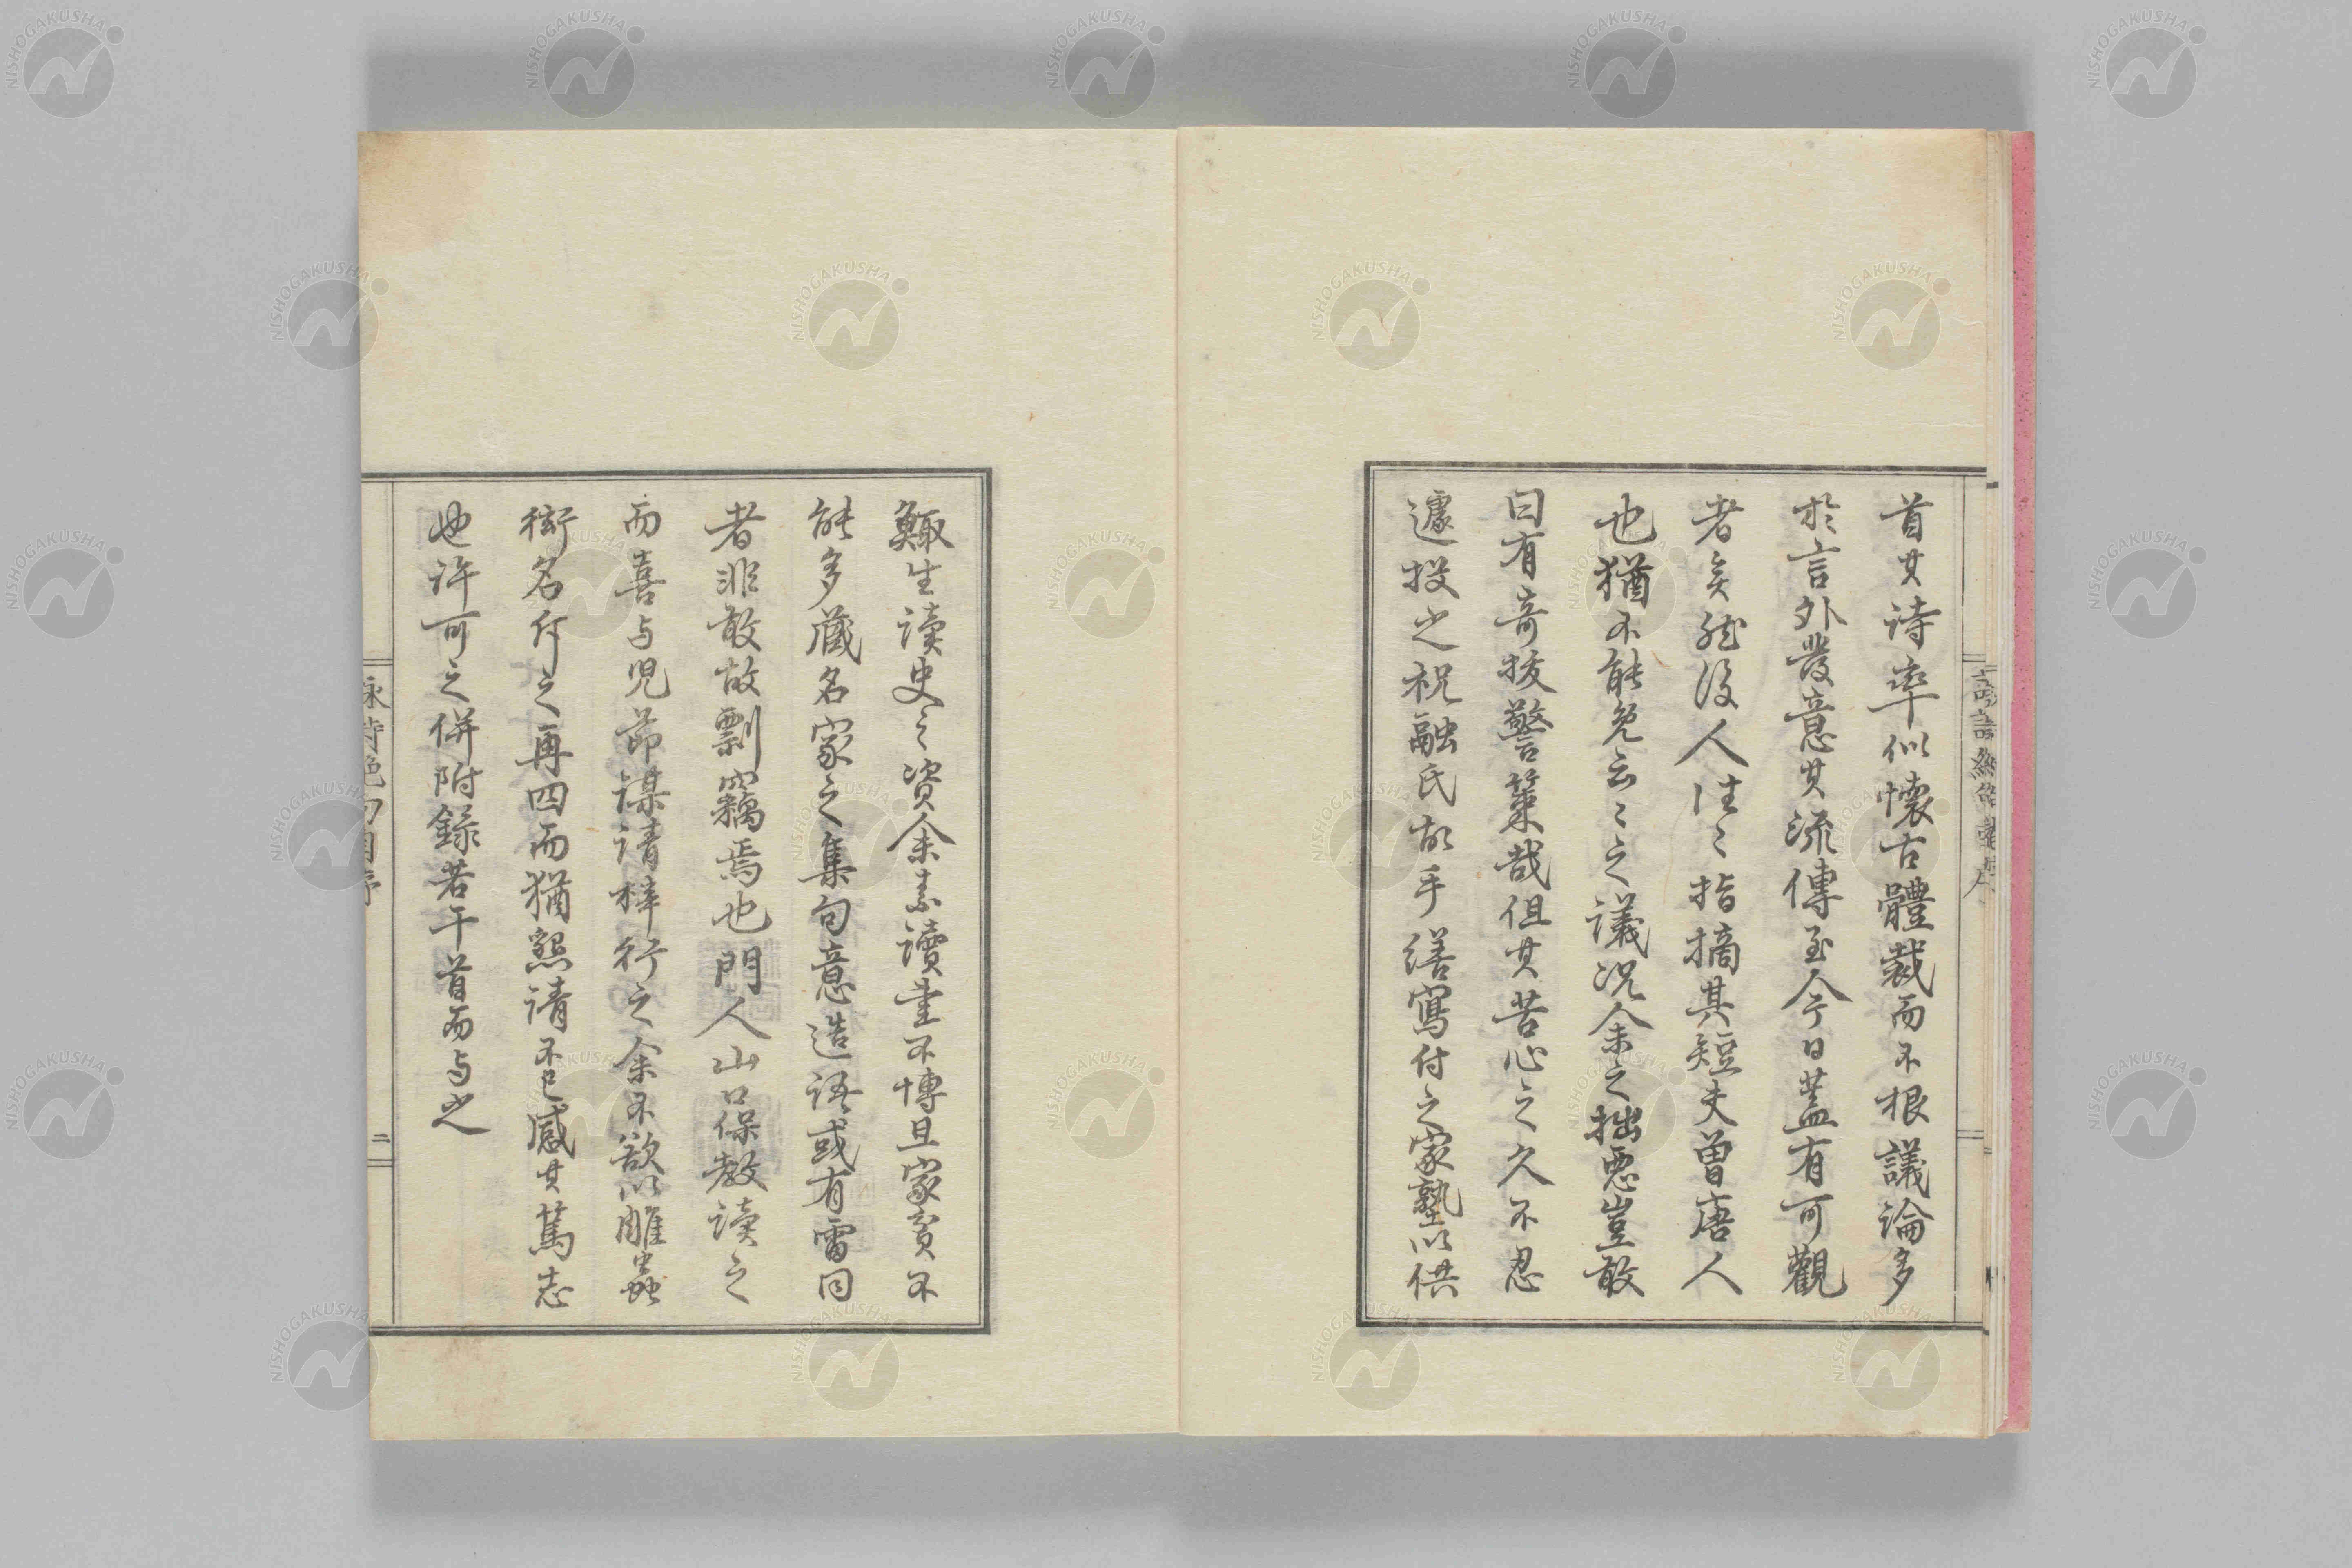 首其詩率似懷古體裁而不根議論多
於言外發意其流傳至今日蓋有可觀
者矣然後人往〻指摘其短夫曽唐人
也猶不能免云〻之議況余之拙惡豈敢
曰有奇拔警策哉但其苦心之久不忍
遽投之祝融氏故手繕寫付之家塾以供
鯫生讀史之資余素讀書不博且家貧不
能多藏名家之集句意造語或有雷同
者非敢故剽竊焉也門人山口保教讀之
而喜与児節謀請梓行之余不欲以雕蟲
衒名佇之再四而猶懇請不已感其篤志
也許可之併附錄若干首而与之
詠詩絕句自序
二
NISHOGAKUSHA